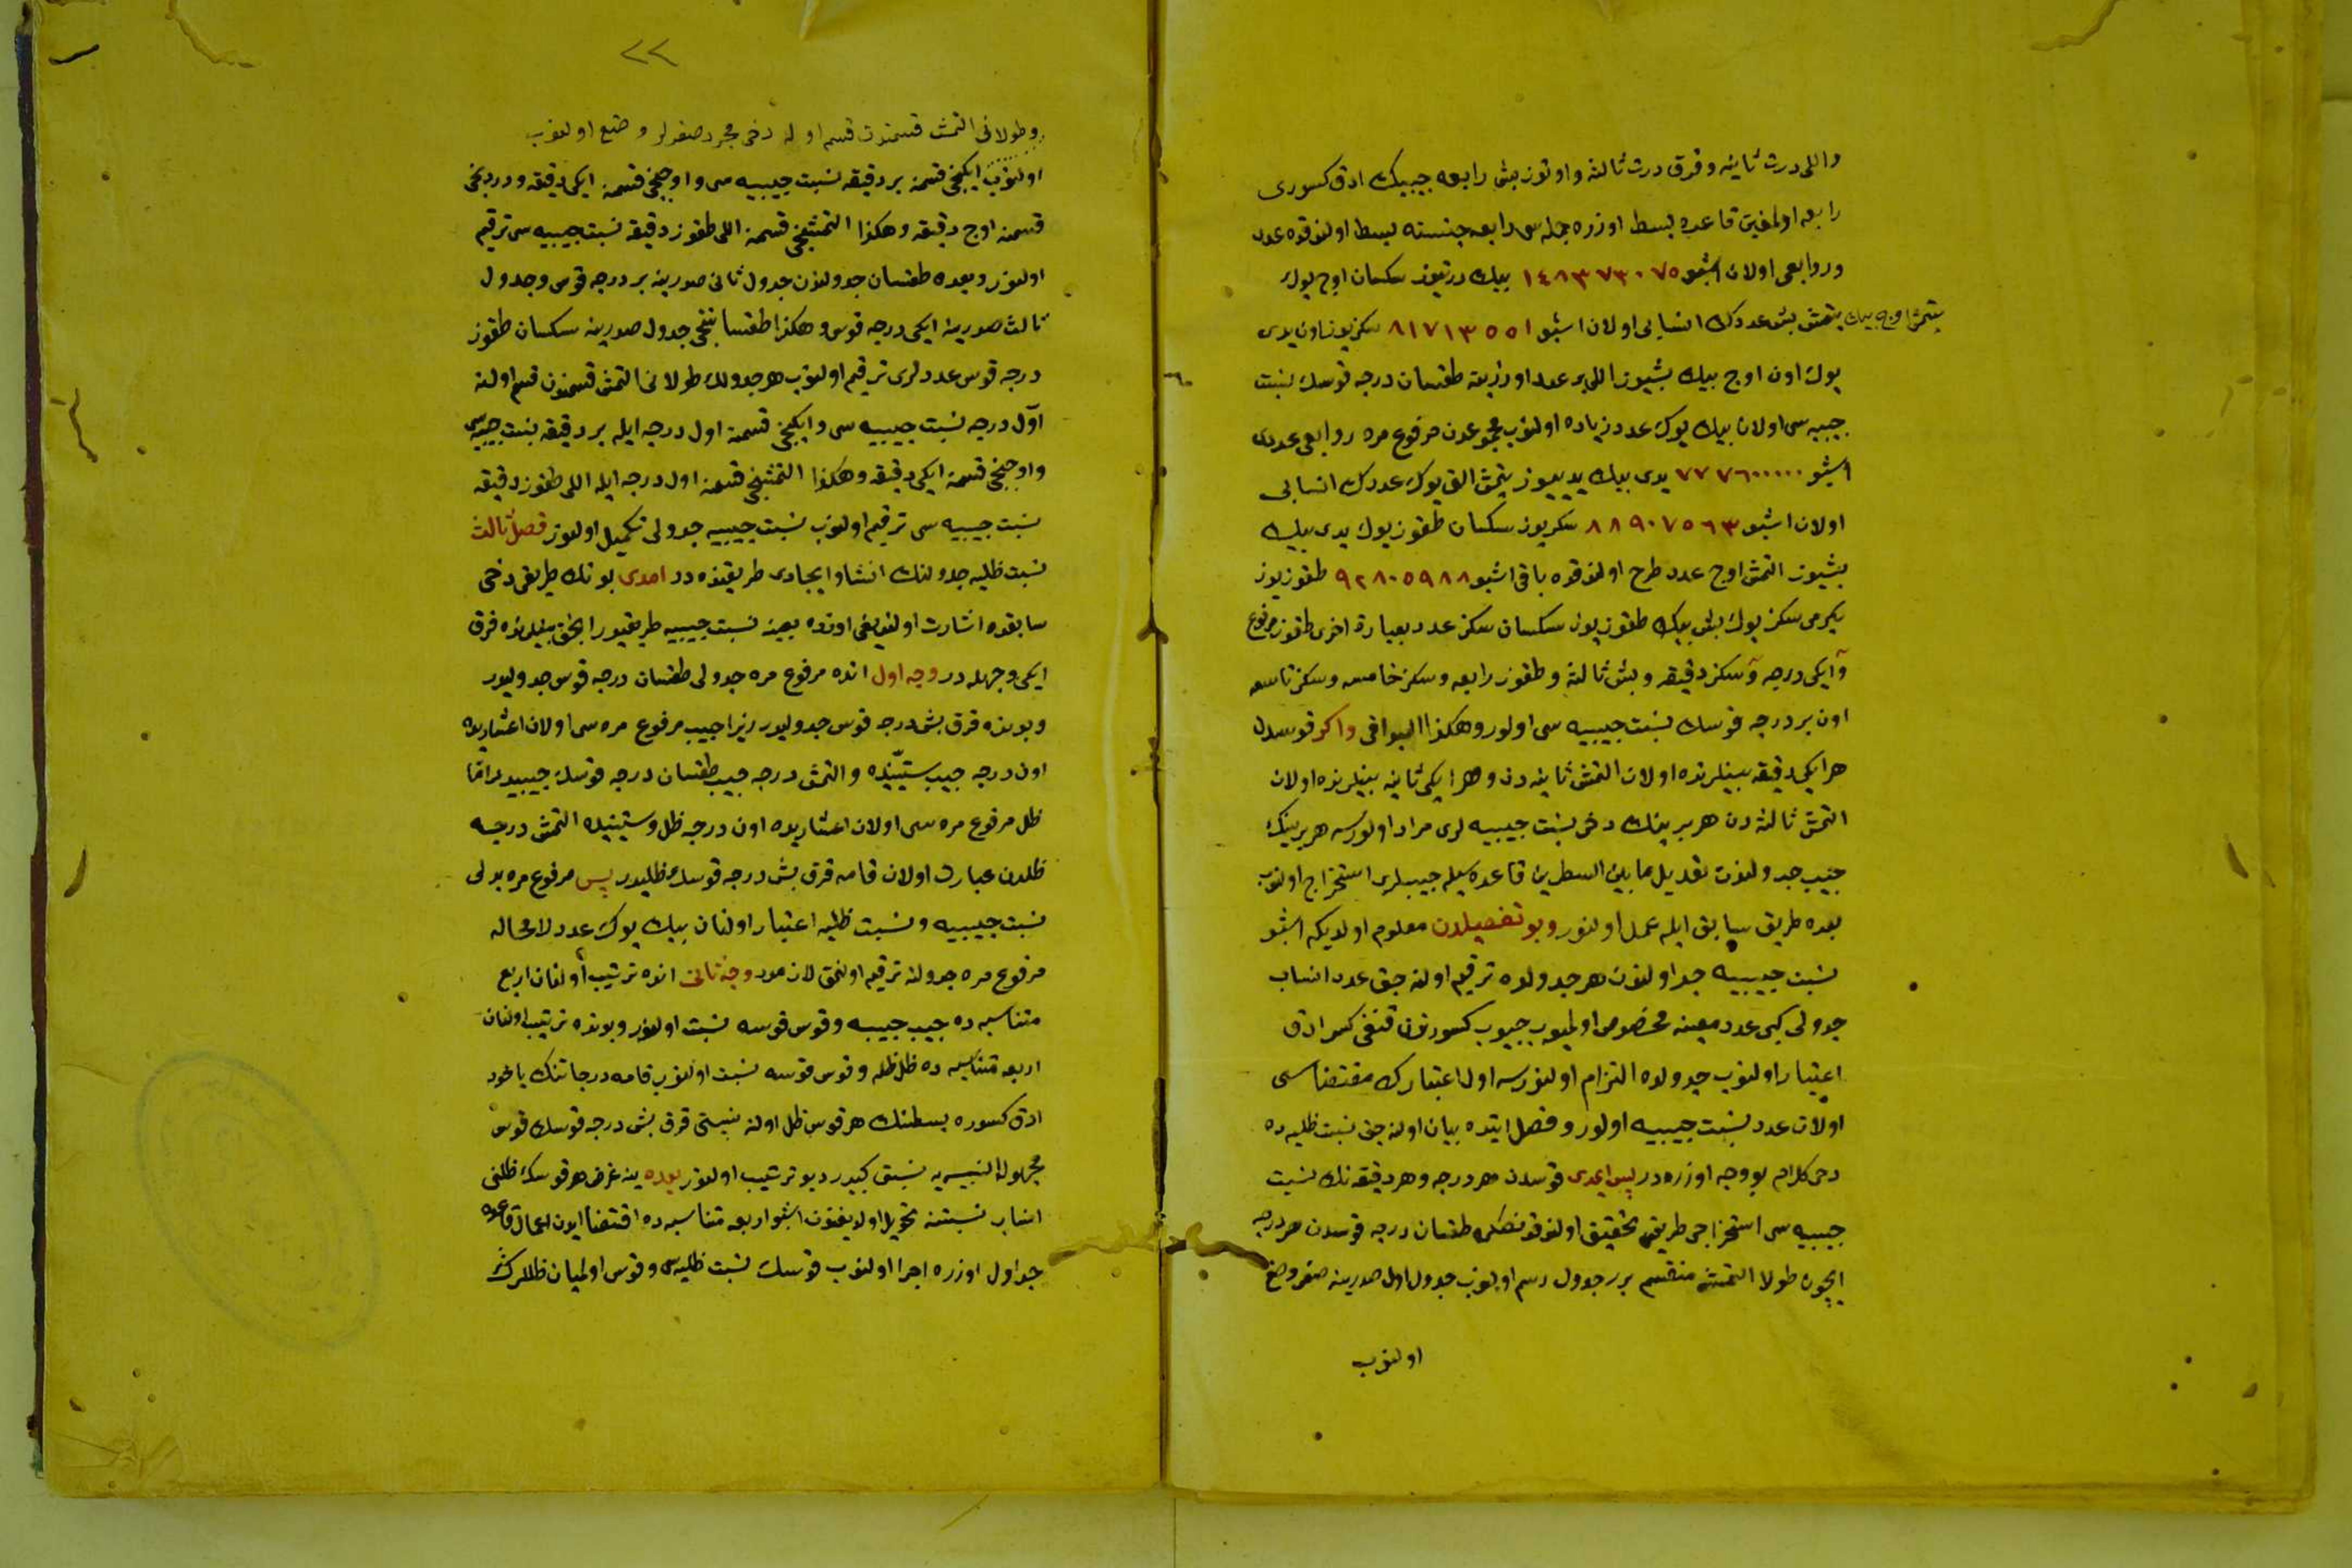 واللی درت ثانیه وقرق درت ثالثه واوتوز بش رابعه جیبیك ادق كسوری
رابعه اولمغین قاعده بسط اوزره جمله سی رابعه جنسنه بسط اولندقده عدد
وروابعی اولان اشبو ١٤٨٣٧٣٠٧٥ بیك درتیوز سكسان اوچ یوك
یتمش اوچ بیك یتمش بش عددك انسابی اولان اشبو ٨١٧١٣٥٥١ سكزیوز اون یدی
یوك اون اوچ بیك بشیوز اللی بر عدد اوزرینه طقسان درجه قوسك نسبت
جیبیه سی اولان بیك یوك عدد زیاده اولنوب مجموعدن مرفوع مره روابعی عددی
اشبو ٧٧٧٦٠٠٠٠٠ یدی بیك یدییوز یتمش التی یوك عددك انسابی
اولان اشبو ٨٨٩٠٧٥٦٣ سكزیوز سكسان طقوز یوك یدی بیك
بشیوز التمش اوچ عدد طرح اولندقده باقی اشبو ٩٢٨٠٥٩٨٨ طقوزیوز
یكرمی سكز یوك بش بیك طقوزیوز سكسان سكز عدد بعبارة اخری طقوز مرفوع
وایكی درجه وسكز دقیقه وبش ثالثه وطقوز رابعه وسكز خامسه وسكز تاسعه
اون بر درجه قوسك نسبت جیبیه سی اولور وهكذا البواقی واكر قوسدن
هر ایكی دقیقه بینلرنده اولان التمش ثانیه دن وهر ایكی ثانیه بینلرنده اولان
التمش ثالثه دن هر برینك دخی نسبت جیبیه لری مراد اولورسه هر برینك
جیب جدولندن تعدیل مابین السطرین قاعده سیله جیبلری استخراج اولنوب
بعده طریق سابق ایله عمل اولنور وبو تفصیلدن معلوم اولدیكه اشبو
نسبت جیبیه جداولندن هر جدولده ترقیم اولنه جق عدد انساب
جدولی كبی عدد معینه مخصوص اولمیوب جیوب كسورندن قنغی كسر ادق
اعتبار اولنوب جدولده التزام اولنورسه اول اعتبارك مقتضاسی
اولان عدد نسبت جیبیه اولور وفصل ایتده بیان اولنه جق نسبت ظلیه ده
دخی كلام بو وجه اوزره در پس ایمدی قوسدن هر درجه وهر دقیقه نك نسبت
جیبیه سی استخراجی طریقی تحقیق اولندقدنصكره طقسان درجه قوسدن هر درجه
ایچون طولا التمشه منقسم برر جدول رسم اولنوب جدول اول صدرینه صفر وضع
اولنوب
٢٢
وطولانی التمش قسمندن قسم اوله دخی مجرد صفرلر وضع اولنوب
اولنوب ایكنجی قسمنه بر دقیقه نسبت جیبیه سی واوچنجی قسمنه ایكی دقیقه ودردنجی
قسمنه اوچ دقیقه وهكذا التمشنجی قسمنه اللی طقوز دقیقه نسبت جیبیه سی ترقیم
اولنور وبعده طقسان جدولندن جدول ثانی صدرینه بر درجه قوس وجدول
ثالث صدرینه ایكی درجه قوس وهكذا طقساننجی جدول صدرینه سكسان طقوز
درجه قوس عددلری ترقیم اولنوب هر جدولك طولانی التمش قسمندن قسم اولنه
اول درجه نسبت جیبیه سی وایكنجی قسمنه اول درجه ایله بر دقیقه نسبت جیبیه سی
واوچنجی قسمنه ایكی دقیقه وهكذا التمشنجی قسمنه اول درجه ایله اللی طقوز دقیقه
نسبت جیبیه سی ترقیم اولنوب نسبت جیبیه جدولی تكمیل اولنور فصل ثالث
نسبت ظلیه جدولنك انشا وایجادی طریقنده در امدی بونك طریقی دخی
سابقده اشارت اولندیغی اوزره بعینه نسبت جیبیه طریقیدر انجق بینلرنده فرق
ایكی وجهله در وجه اول انده مرفوع مره جدولی طقسان درجه قوس جدولیدر
وبونده قرق بش درجه قوس جدولیدر زیرا جیب مرفوع مره سی اولان اعشاریده
اون درجه جیب ستینیده والتمش درجه جیب طقسان درجه قوسك جیبیدر اما
ظل مرفوع مره سی اولان اعشاریده اون درجه ظل وستینیده التمش درجه
ظلدن عبارت اولان قامه قرق بش درجه قوسك ظلیدر پس مرفوع مره بدلی
نسبت جیبیه ونسبت ظلیه اعتبار اولنان بیك یوك عدد لامحاله
مرفوع مره جدولنه ترقیم اولنمق لازمدر وجه ثانی انده ترتیب اولنان اربع
متناسبه ده جیب جیبه وقوس قوسه نسبت اولنور وبونده ترتیب اولنان
اربعه متناسبه ده ظل ظله وقوس قوسه نسبت اولنوب قامه درجاتنك یاخود
ادق كسوره بسطنك هر قوس ظل اولنه نسبتی قرق بش درجه قوسك قوس
مجهولة النسبه یه نسبتی كبیدر دیو ترتیب اولنور بعده ینه غرض هر قوسك ظلنی
انساب نسبتنه تحویل اولدیغندن اشبو اربعه متناسبه ده اقتضا ایدن اعمال قاعده
جداول اوزره اجرا اولنوب قوسك نسبت ظلیه سی وقوس اولمیان ظللرك